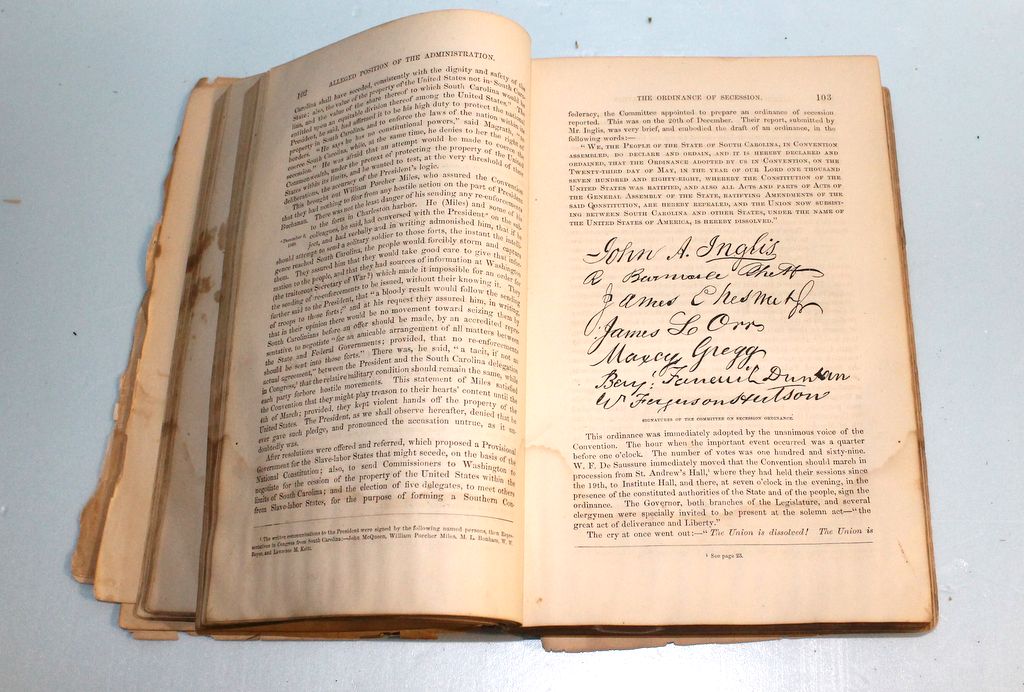 102
ALLEGED POSITION OF THE ADMINISTRATION.
Carolina shall have seceded, consistently with the dignity and safety of the
State; also, the value of the property of the United States not in South Caro-
lina, and the value of the share thereof to which South Carolina would be
entitled upon an equitable division thereof among the United States." The
President, he said, had affirmed it to be his high duty to protect the
property in South Carolina, and to enforce the laws of the nation within its
borders. "He says he has no constitutional powers," said Magrath, "to
coerce South Carolina, while, at the same time, he denies to her the right of
secession." He was afraid that an attempt would be made to coerce the
Commonwealth, under the pretext of protecting the property of the United
States within its limits, and he wanted to test, at the very threshold of these
deliberations, the accuracy of the President's logic.
This brought out William Porcher Miles, who assured the Convention
that they had nothing to fear from any hostile action on the part of President
Buchanan. There was not the least danger of his sending any re-enforcements
to the forts in Charleston harbor. He (Miles) and some of his
colleagues, he said, had conversed with the President on the sub-
ject, and had verbally and in writing admonished him, that if he
should attempt to send a solitary soldier to those forts, the instant the intelli-
gence reached South Carolina, the people would forcibly storm and capture
them. They assured him that they would take good care to give that infor-
mation to the people, and that they had sources of information at Washington
(the traitorous Secretary of War?) which made it impossible for an order for
the sending of re-enforcements to be issued, without their knowing it. They
further said to the President, that "a bloody result would follow the sending
of troops to those forts;" and at his request they assured him, in writing,
that in their opinion there would be no movement toward seizing them by
South Carolinians before an offer should be made, by an accredited repre-
sentative, to negotiate "for an amicable arrangement of all matters between
the State and Federal Governments; provided, that no re-enforcements
should be sent into those forts." There was, he said, "a tacit, if not an
actual agreement," between the President and the South Carolina delegation
in Congress, that the relative military condition should remain the same, while
each party forbore hostile movements. This statement of Miles satisfied
the Convention that they might play treason to their hearts' content until the
4th of March; provided, they kept violent hands off the property of the
United States. The President, as we shall observe hereafter, denied that he
ever gave such pledge, and pronounced the accusation untrue, as it un-
doubtedly was.
After resolutions were offered and referred, which proposed a Provisional
Government for the Slave-labor States that might secede, on the basis of the
National Constitution; also, to send Commissioners to Washington to
negotiate for the cession of the property of the United States within the
limits of South Carolina; and the election of five delegates, to meet others
from Slave-labor States, for the purpose of forming a Southern Con-
¹ The written communications to the President were signed by the following named persons, then Repre-
sentatives in Congress from South Carolina:—John McQueen, William Porcher Miles, M. L. Bonham, W. W.
Boyce and Lawrence M. Keitt.
THE ORDINANCE OF SECESSION.
103
federacy, the Committee appointed to prepare an ordinance of secession
reported. This was on the 20th of December. Their report, submitted by
Mr. Inglis, was very brief, and embodied the draft of an ordinance, in the
following words:—
"WE, THE PEOPLE OF THE STATE OF SOUTH CAROLINA, IN CONVENTION
ASSEMBLED, DO DECLARE AND ORDAIN, AND IT IS HEREBY DECLARED AND
ORDAINED, THAT THE ORDINANCE ADOPTED BY US IN CONVENTION, ON THE
TWENTY-THIRD DAY OF MAY, IN THE YEAR OF OUR LORD ONE THOUSAND
SEVEN HUNDRED AND EIGHTY-EIGHT, WHEREBY THE CONSTITUTION OF THE
UNITED STATES WAS RATIFIED, AND ALSO ALL ACTS AND PARTS OF ACTS OF
THE GENERAL ASSEMBLY OF THE STATE, RATIFYING AMENDMENTS OF THE
SAID CONSTITUTION, ARE HEREBY REPEALED, AND THE UNION NOW SUBSIST-
ING BETWEEN SOUTH CAROLINA AND OTHER STATES, UNDER THE NAME OF
THE UNITED STATES OF AMERICA, IS HEREBY DISSOLVED."
John A. Inglis
R Barnwell Rhett
James Chesnut Jr
James L Orr
Maxcy Gregg
Benj. Faneuil Dunkin
W Ferguson Hutson
SIGNATURES OF THE COMMITTEE ON SECESSION ORDINANCE.
This ordinance was immediately adopted by the unanimous voice of the
Convention. The hour when the important event occurred was a quarter
before one o'clock. The number of votes was one hundred and sixty-nine.
W. F. De Saussure immediately moved that the Convention should march in
procession from St. Andrew's Hall,¹ where they had held their sessions since
the 19th, to Institute Hall, and there, at seven o'clock in the evening, in the
presence of the constituted authorities of the State and of the people, sign the
ordinance. The Governor, both branches of the Legislature, and several
clergymen were specially invited to be present at the solemn act—"the
great act of deliverance and Liberty."
The cry at once went out:—"The Union is dissolved! The Union is
¹ See page 23.